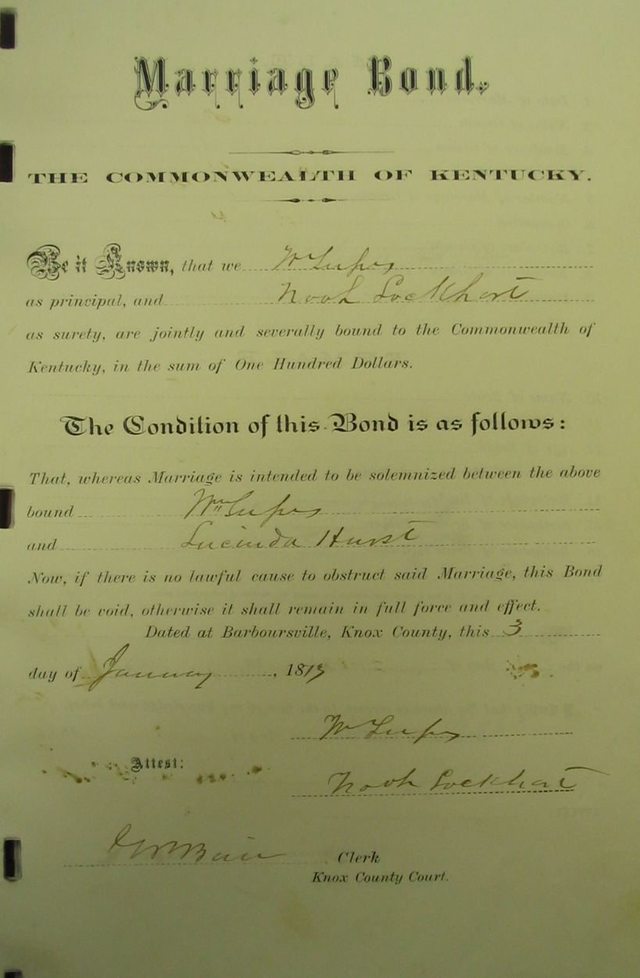 Marriage Bond.
THE COMMONWEALTH OF KENTUCKY.
Be it Known, that we Wm
as principal, and Noah Lockhart
as surety, are jointly and severally bound to the Commonwealth of
Kentucky, in the sum of One Hundred Dollars.
The Condition of this Bond is as follows:
That, whereas Marriage is intended to be solemnized between the above
bound Wm
and Lucinda Hurst
Now, if there is no lawful cause to obstruct said Marriage, this Bond
shall be void, otherwise it shall remain in full force and effect.
Dated at Barboursville, Knox County, this 3
day of January, 1873
Wm
Attest:
Noah Lockhart
Clerk
Knox County Court.